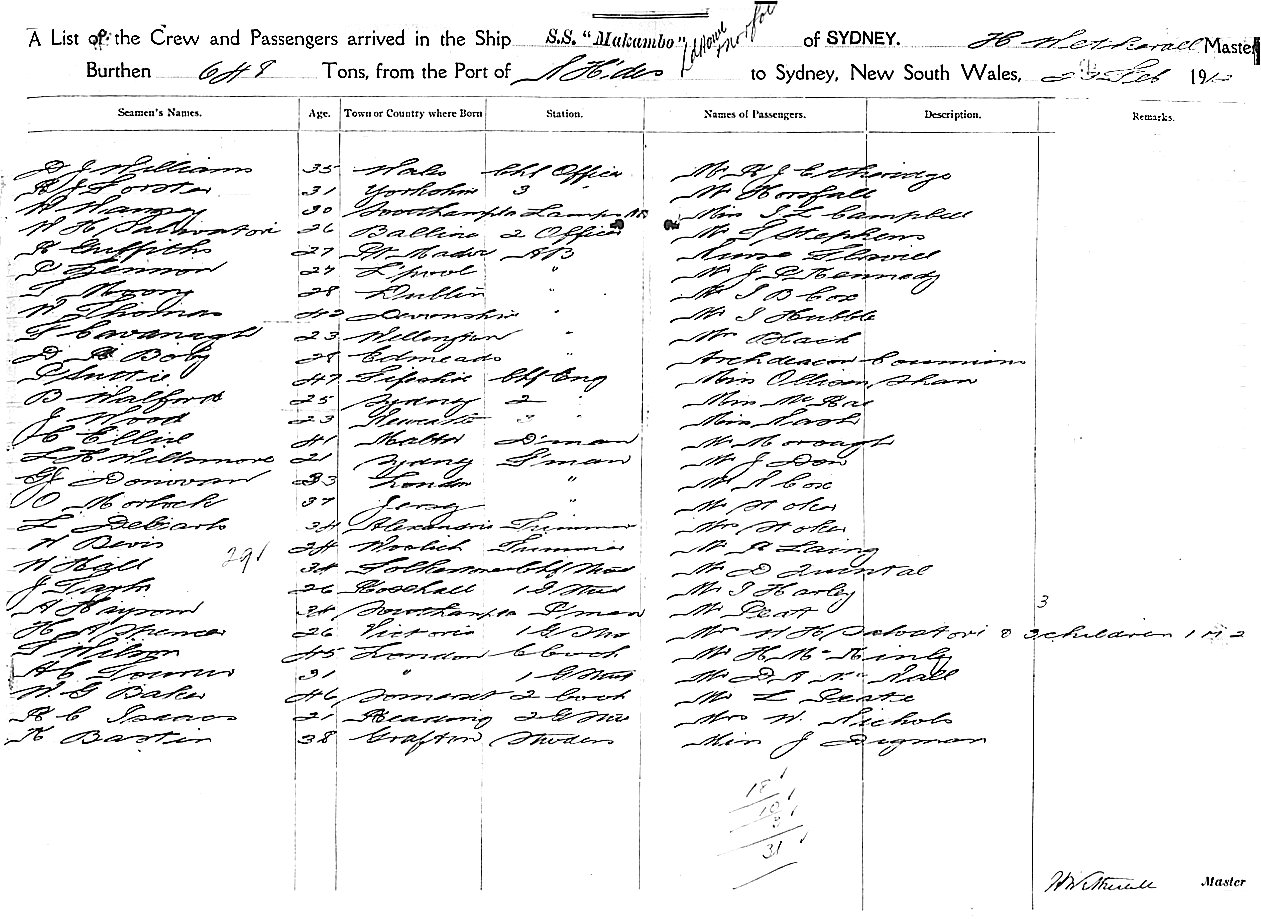 A List of the Crew and Passengers arrived in the Ship S.S. "Makambo" Ld Howe Norfol of SYDNEY. H Wetherall Master
Burthen 648 Tons, from the Port of N Hides to Sydney, New South Wales, Feb 191
Seamen's Names. Age. Town or Country where Born Station. Names of Passengers. Description. Remarks.
D J Williams 35 Wales Chf Officer Mr R J Etheridge
R J Forster 31 Yorkshire 3 " Mr Horsfall
30 Southampton Lamps AB Miss I L Campbell
W H Salvatori 26 Ballina 2 Officer Mr S Stephens
R Griffiths 27 Pt Madoc AB Nurse
P Lennon 27 L'pool " Mr J P Kennedy
T Moony 28 Dublin " Mr I B Cox
W Thomas 42 Devonshire " Mr I Hubble
F Cavanagh 23 Wellington " Mr Black
D R Boby 28 " Archdeacon Commins
47 Chf Eng Miss Shaw
B Walford 25 Sydney 2 " Miss McRae
J Wood 23 Newcastle 3 " Miss Nash
C Ellis 41 Malton D'man Mr Morough
L H Wiltsmore 21 Sydney F'man Mr J Don
G J Donovan 33 London " Mr A Cox
O Morlock 37 Jersey " Mr Stoker
L 34 Alexandria Trimmer Mrs Stoker
W Bevis 24 Woolich Trimmer Mr R Laing
291
W Hall 34 Folkestone Chf Stwd Mr D Quintal
J Tark 26 1 S Stwd Mr I Harley
A Haysom 34 Southampton P'man Mr Peat 3
H A Spencer 26 Victoria 1 G Stw Mrs W H Salvatori & 3 children 1 M 2
T Wilson 45 London C Cook Mr H McKinly
31 " 1 G Stwd Mr D A McNall
W. G Baker 46 Somerset 2 Cook Mr L Peate
R C Isaacs 21 Reading 2 G Stw Mrs W. Nichols
K Bastin 38 Grafton Stwdess Miss J Digman
18
10
3
31
H Wetherall Master